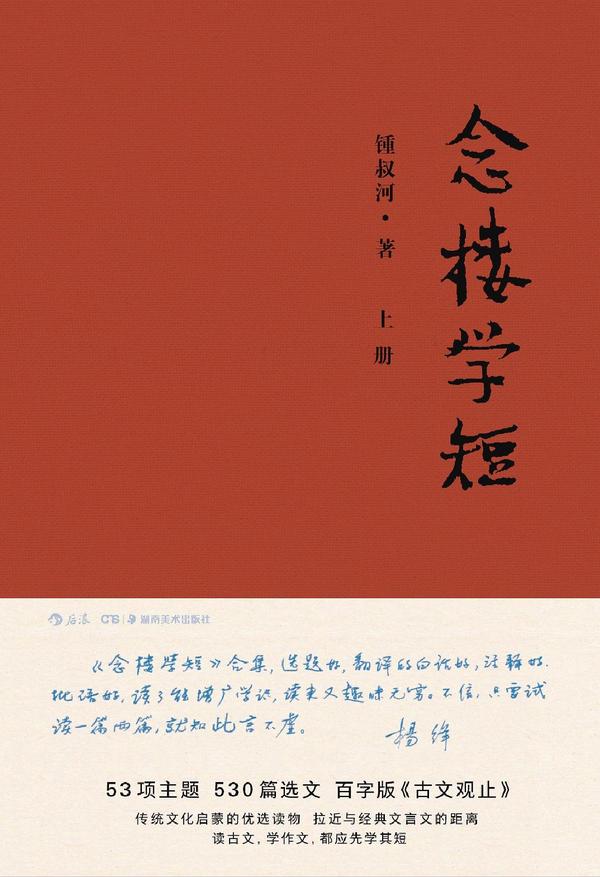 念楼学短
锺叔河·著 上册
后浪 CTS 湖南美术出版社
《念楼学短》合集,选题好,翻译的白话好,注释好.
批语好,读了能增广学识,读来又趣味无穷。不信,只需试
读一篇两篇,就知此言不虚。
杨绛
53项主题 530篇选文 百字版《古文观止》
传统文化启蒙的优选读物 拉近与经典文言文的距离
读古文,学作文,都应先学其短